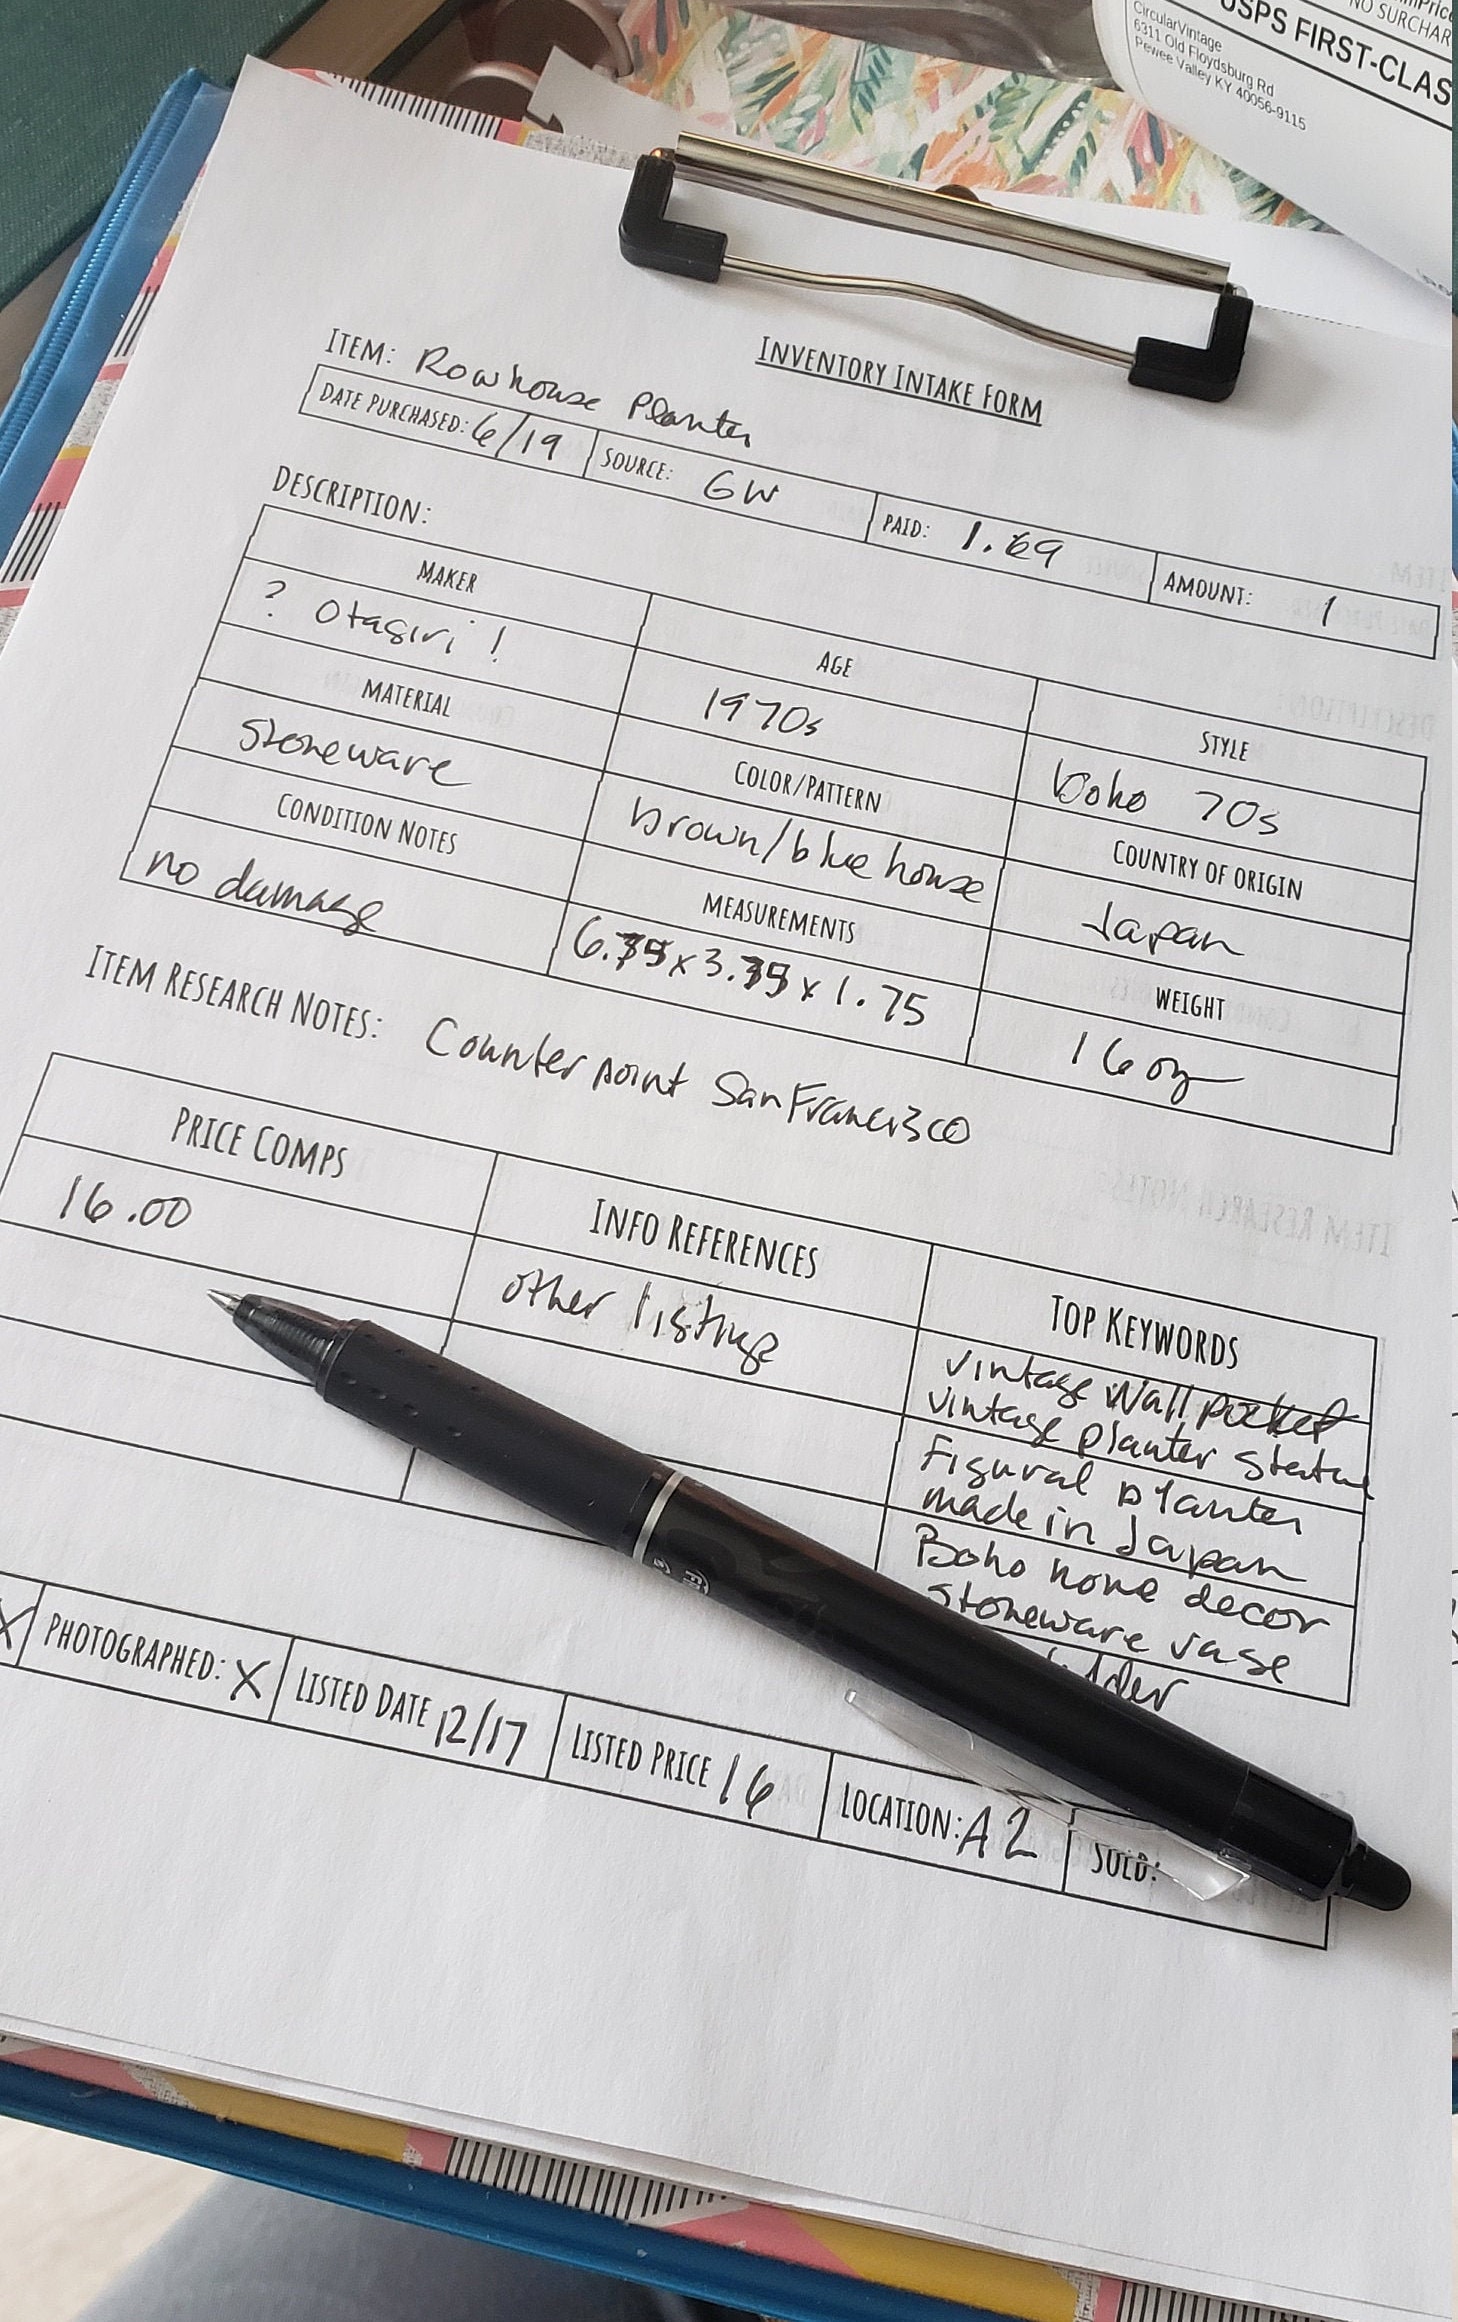 NO SURCHAR
USPS FIRST-CLAS
CircularVintage
6311 Old Floydsburg Rd
Pewee Valley KY 40056-9115
INVENTORY INTAKE FORM
ITEM: Rowhouse Planter
DATE PURCHASED: 6/19 SOURCE: GW PAID: 1.69 AMOUNT: 1
DESCRIPTION:
MAKER AGE STYLE
? Otagiri ! 1970s boho 70s
MATERIAL COLOR/PATTERN COUNTRY OF ORIGIN
Stoneware brown/blue house Japan
CONDITION NOTES MEASUREMENTS WEIGHT
no damage 6.75 x 3.75 x 1.75 16 oz
ITEM RESEARCH NOTES: Counterpoint San Francisco
PRICE COMPS INFO REFERENCES TOP KEYWORDS
16.00 other listings vintage Wall pocket
vintage planter statue
Figural planter
made in Japan
Boho home decor
stoneware vase
X PHOTOGRAPHED: X LISTED DATE 12/17 LISTED PRICE 16 LOCATION: A2 SOLD: